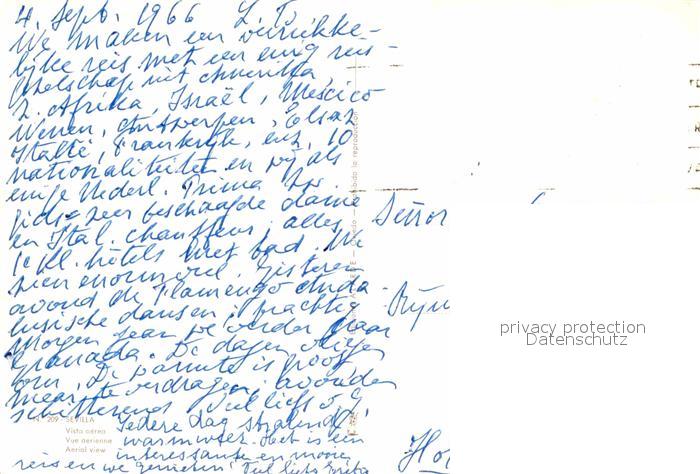 4. Sept. 1966 L. T.
We maken een verrukke-
lijke reis met een enig reis-
gezelschap uit Amerika,
Z. Afrika, Israël, Mexico
Wenen, Antwerpen, Elsaz
Italië, Frankrijk, enz, 10
nationaliteiten en wij als
enige Nederl. Prima
gids zeer beschaafde dame
en Ital. chauffeur, alles
1e kl. hôtels met bad. We
zien enorm veel. Gisteren
avond de Flamengo Anda-
lusische dansen, prachtig
Morgen gaan we verder naar
Granada. De dagen vliegen
om. De warmte is groot
maar te verdragen, avonden
schitterend Veel liefs v. G
Iedere dag stralend,
warm weer. Het is een
interessante en mooie
reis en we genieten! Veel liefs
Señor
209 - SEVILLA
Vista aérea
Vue aérienne
Aerial view
Prohibida la reproducción
privacy protection
Datenschutz